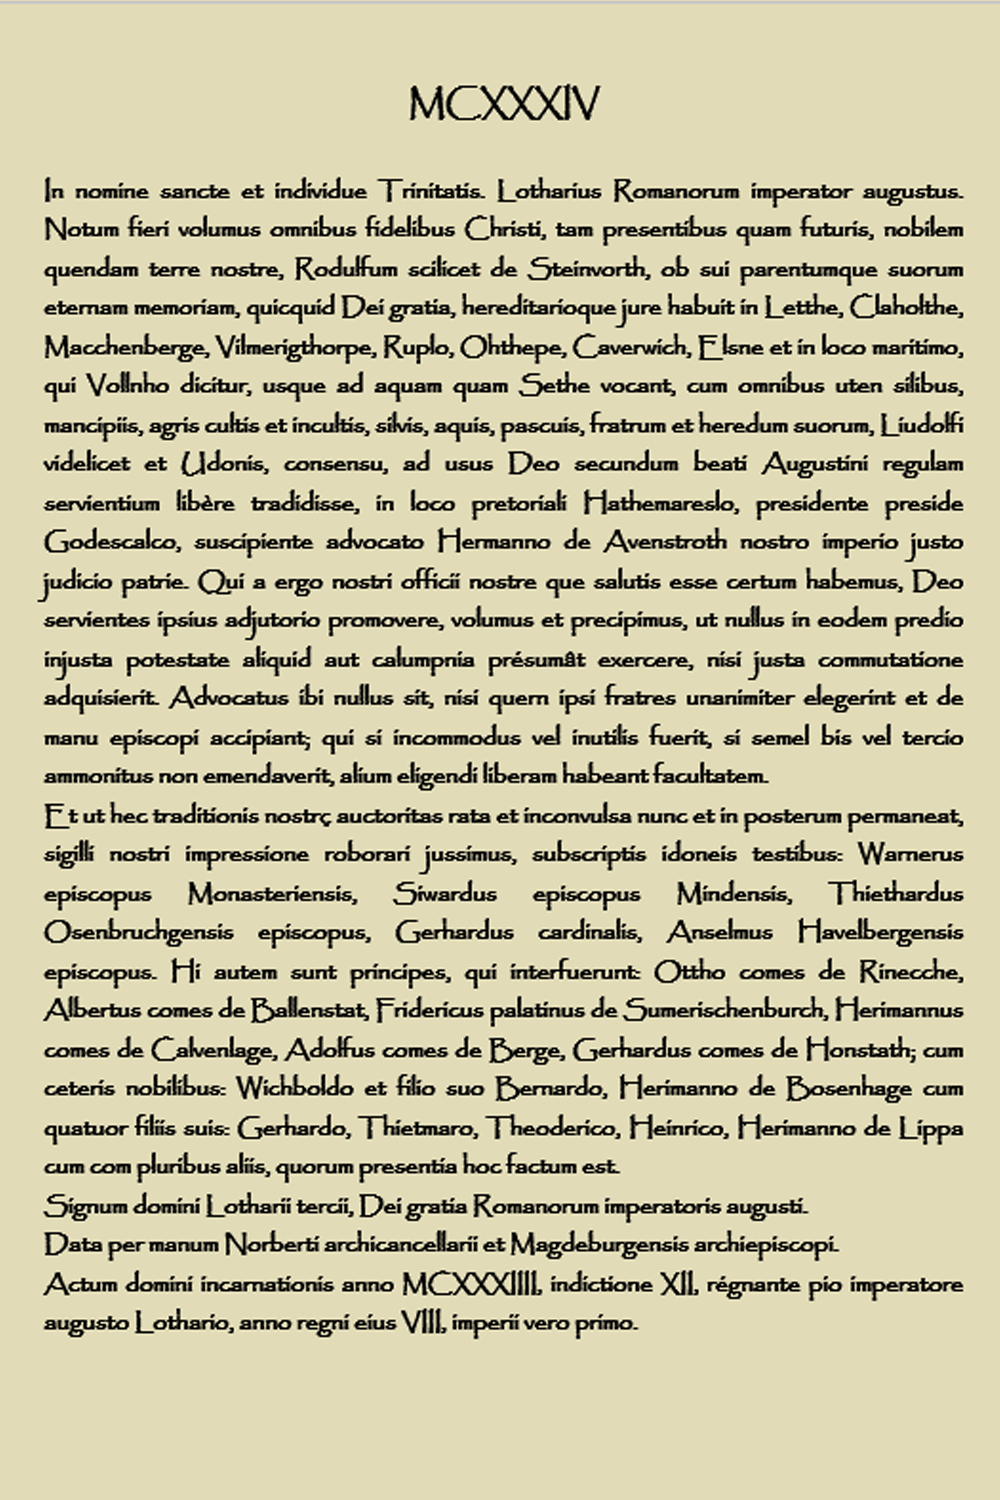 MCXXXIV
In nomine sancte et individue Trinitatis. Lotharius Romanorum imperator augustus.
Notum fieri volumus omnibus fidelibus Christi, tam presentibus quam futuris, nobilem
quendam terre nostre, Rodulfum scilicet de Steinvorth, ob sui parentumque suorum
eternam memoriam, quicquid Dei gratia, hereditarioque jure habuit in Letthe, Claholthe,
Macchenberge, Vilmerigthorpe, Ruplo, Ohthepe, Caverwich, Elsne et in loco maritimo,
qui Vollnho dicitur, usque ad aquam quam Sethe vocant, cum omnibus uten silibus,
mancipiis, agris cultis et incultis, silvis, aquis, pascuis, fratrum et heredum suorum, Liudolfi
videlicet et Udonis, consensu, ad usus Deo secundum beati Augustini regulam
servientium libère tradidisse, in loco pretoriali Hathemareslo, presidente preside
Godescalco, suscipiente advocato Hermanno de Avenstroth nostro imperio justo
judicio patrie. Qui a ergo nostri officii nostre que salutis esse certum habemus, Deo
servientes ipsius adjutorio promovere, volumus et precipimus, ut nullus in eodem predio
injusta potestate aliquid aut calumpnia présumât exercere, nisi justa commutatione
adquisierit. Advocatus ibi nullus sit, nisi quern ipsi fratres unanimiter elegerint et de
manu episcopi accipiant; qui si incommodus vel inutilis fuerit, si semel bis vel tercio
ammonitus non emendaverit, alium eligendi liberam habeant facultatem.
Et ut hec traditionis nostrç auctoritas rata et inconvulsa nunc et in posterum permaneat,
sigilli nostri impressione roborari jussimus, subscriptis idoneis testibus: Warnerus
episcopus Monasteriensis, Siwardus episcopus Mindensis, Thiethardus
Osenbruchgensis episcopus, Gerhardus cardinalis, Anselmus Havelbergensis
episcopus. Hi autem sunt principes, qui interfuerunt: Ottho comes de Rinecche,
Albertus comes de Ballenstat, Fridericus palatinus de Sumerischenburch, Herimannus
comes de Calvenlage, Adolfus comes de Berge, Gerhardus comes de Honstath; cum
ceteris nobilibus: Wichboldo et filio suo Bernardo, Herimanno de Bosenhage cum
quatuor filiis suis: Gerhardo, Thietmaro, Theoderico, Heinrico, Herimanno de Lippa
cum com pluribus aliis, quorum presentia hoc factum est.
Signum domini Lotharii tercii, Dei gratia Romanorum imperatoris augusti.
Data per manum Norberti archicancellarii et Magdeburgensis archiepiscopi.
Actum domini incarnationis anno MCXXXIIII, indictione XII, régnante pio imperatore
augusto Lothario, anno regni eius VIII, imperii vero primo.